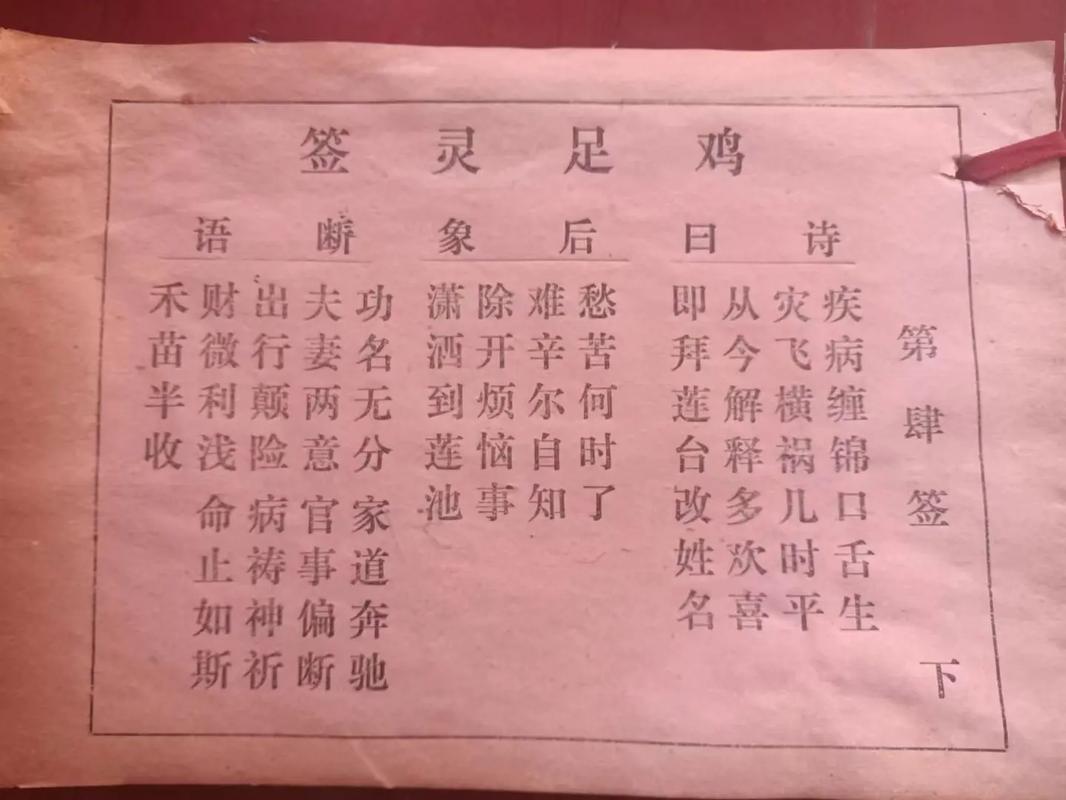 鸡足灵签
第肆签 下
诗曰
疾病缠锦口舌生
灾飞横祸几时平
从今解释多欢喜
即拜莲台改姓名
后象
愁苦何时了
难辛尔自知
除开烦恼事
潇洒到莲池
断语
功名无分 家道奔驰
夫妻两意 官事偏断
出行颠险 病祷神祈
财微利浅 命止如斯
禾苗半收